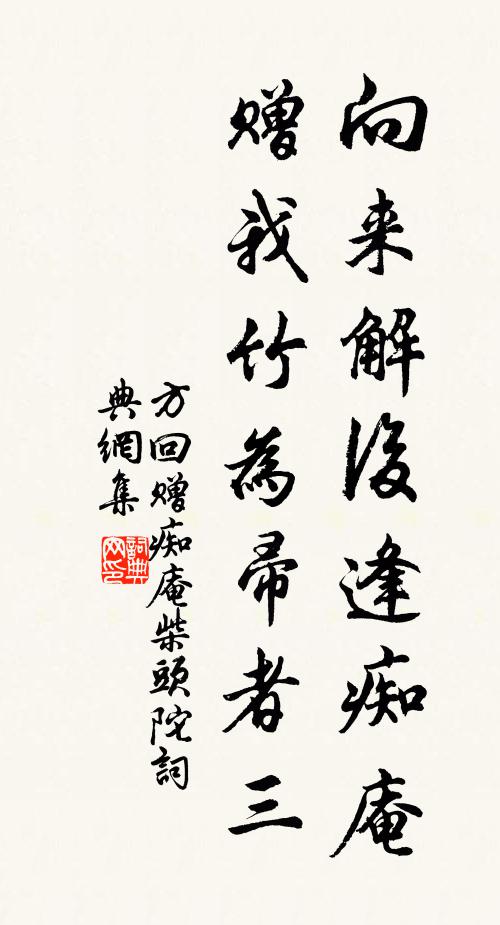 向来解后逢痴庵
赠我竹為帚者三
方回赠痴庵柴頭陀詞
典網集
詞典网印